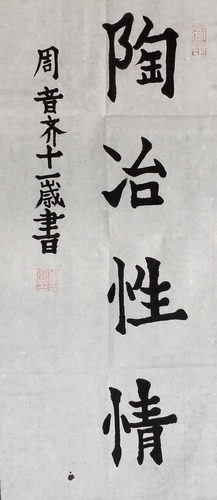 陶冶性情
周音齐十一歲書